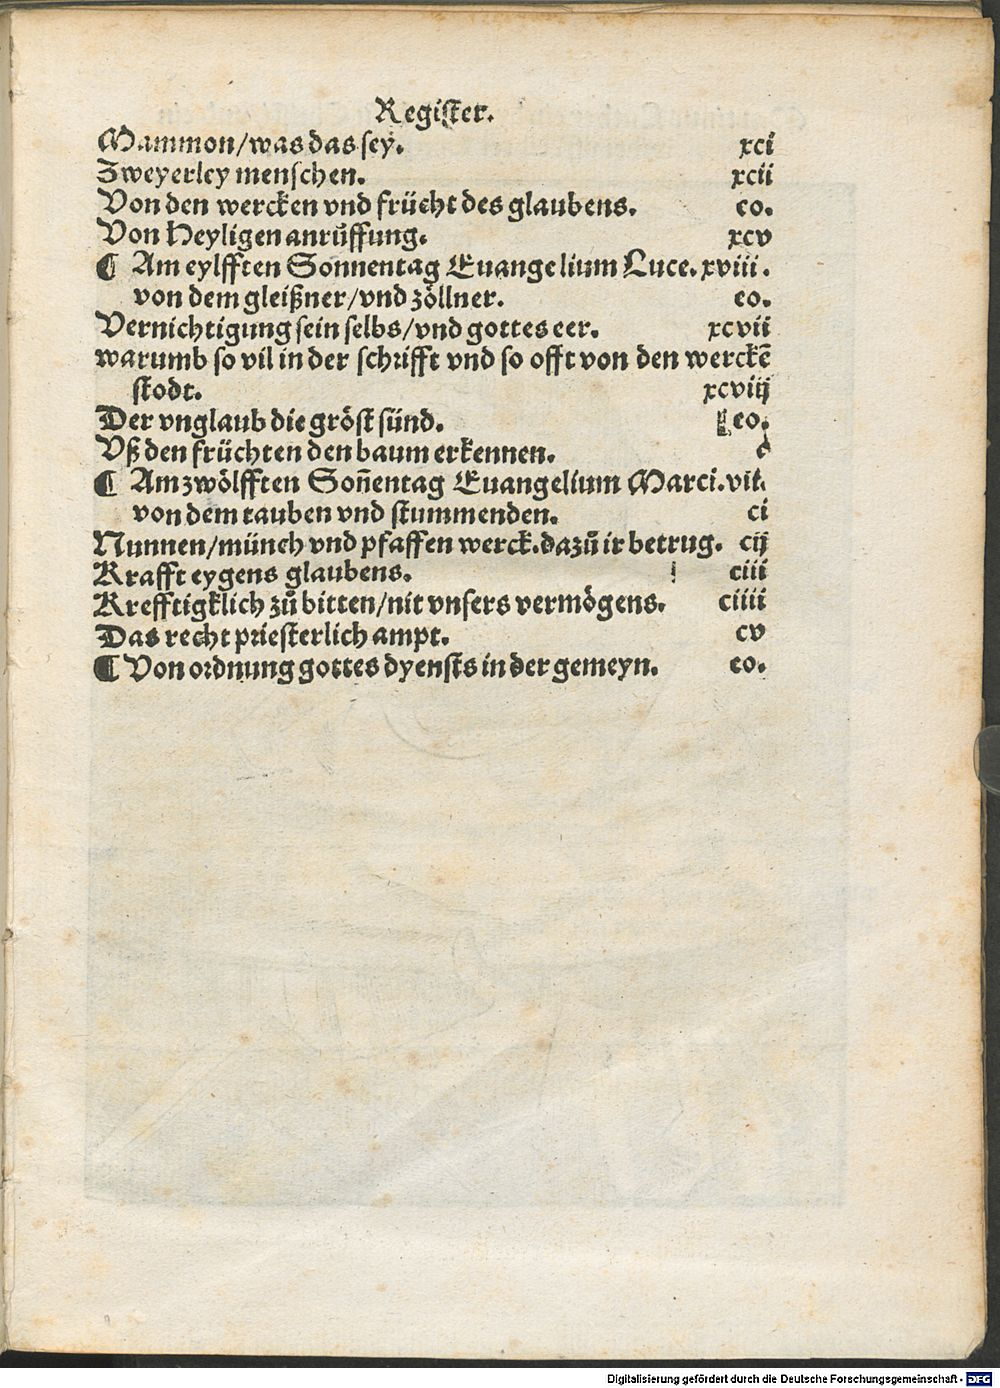 Regiſter.
Mammon/was das ſey. xci
Zweyerley menſchen. xcii
Von den wercken vnd frücht des glaubens. eo.
Von Heyligen anrůffung. xcv
¶ Am eylfften Sonnentag Euangelium Luce. xviii.
von dem gleißner/vnd zöllner. eo.
Vernichtigung ſein ſelbs/vnd gottes eer. xcvii
warumb ſo vil in der ſchrifft vnd ſo offt von den werckē
ſtodt. xcviij
Der vnglaub die gröſt ſünd. eo.
Vß den früchten den baum erkennen. c
¶ Am zwölfften Soñentag Euangelium Marci. vii.
von dem tauben vnd ſtummenden. ci
Nunnen/münch vnd pfaffen werck. dazů ir betrug. cij
Krafft eygens glaubens. ciii
Krefftigklich zů bitten/nit vnſers vermögens. ciiii
Das recht prieſterlich ampt. cv
¶ Von ordnung gottes dyenſts in der gemeyn. eo.
Digitalisierung gefördert durch die Deutsche Forschungsgemeinschaft - DFG